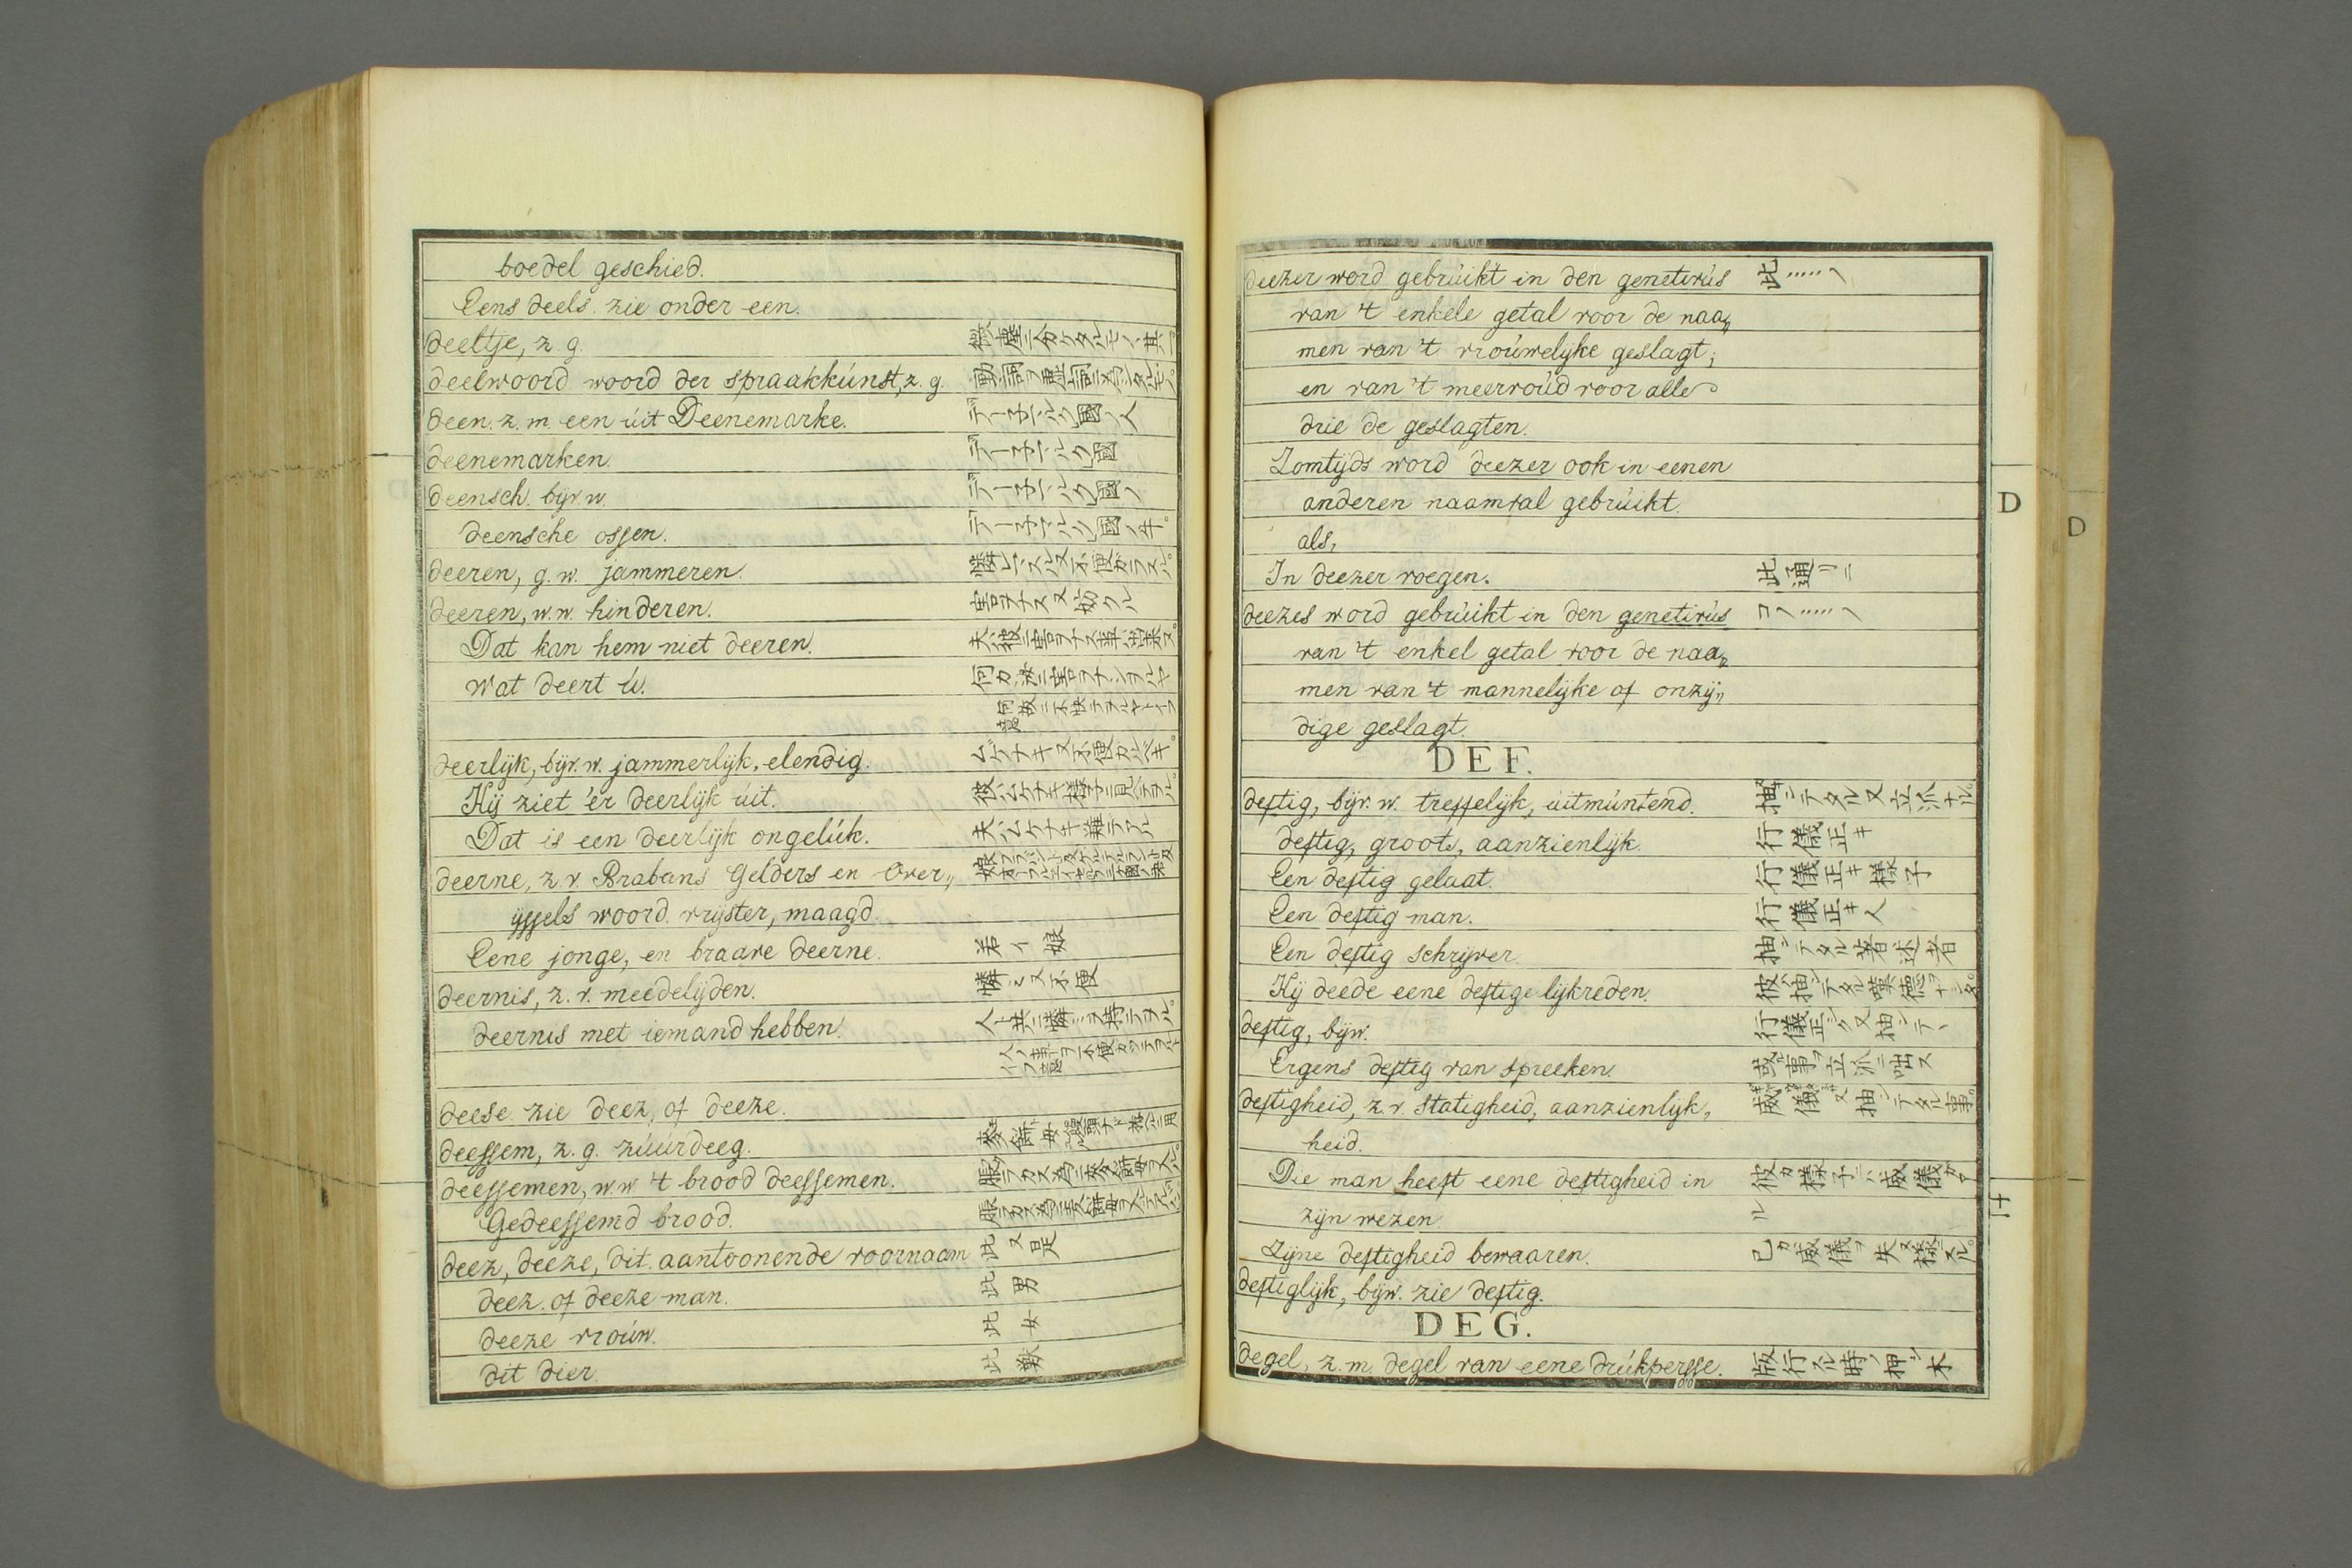 boedel geschied.
Eens deels. zie onder een.
deeltje, z. g.
deelwoord woord der spraakkúnst, z. g. 動詞ヲ虚詞ニ為シタルモノ。
deen. z. m. een úit Deenemarke. デー子マルク國ノ人
deenemarken. デー子マルク國
deensch. bijv. w. デー子マルク國ノ
deensche ossen. デー子マルク國ノ牛。
deeren, g. w. jammeren.
deeren, w. w. hinderen. 害ヲナス又妨クル
Dat kan hem niet deeren.
Wat deert ú.
deerlijk, bijv. w. jammerlijk, elendig. ムゲナキ又不便カルベキ。
Hij ziet 'er deerlijk úit.
Dat is een deerlijk ongelúk.
deerne, z. v. Brabans Gelders en Over„
ijssels woord. vrijster, maagd.
Eene jonge, en braave deerne. 若イ娘
deernis, z. v. meedelijden. 憐ミ又不便
deernis met iemand hebben.
deese. zie deez, of deeze.
deessem, z. g. zúúrdeeg.
deessemen, w. w 't brood deessemen.
Gedeessemd brood.
deez, deeze, dit. aantoonende voornaam 此又是
deez. of deeze man. 此男
deeze vroúw. 此女
dit dier. 此獣
deezer word gebrúikt in den genetivús 此……ノ
van 't enkele getal voor de naa„
men van 't vroúwelijke geslagt;
en van 't meervoúd voor alle
drie de geslagten.
Zomtijds word deezer ook in eenen
anderen naamval gebrúikt.
als,
In deezer voegen. 此通リニ
deezes word gebrúikt in den genetivús コノ……ノ
van 't enkel getal voor de naa„
men van 't mannelijke of onzij„
dige geslagt.
DEF.
deftig, bijv. w. treffelijk, úitmúntend. 抽テタル又立派ナル。
deftig, groots, aanzienlijk. 行儀正キ
Een deftig gelaat. 行儀正キ様子
Een deftig man. 行儀正キ人
Een deftig schrijver. 抽テタル著述者
Hij deede eene deftige lijkreden.
deftig, bijw. 行儀正ク又抽テヽ
Ergens deftig van spreeken.
deftigheid, z. v. statigheid, aanzienlijk„
heid.
Die man heeft eene deftigheid in 彼ガ様子ニハ威儀ガア
zijn wezen. ル
Zijne deftigheid bewaaren. 己ガ威儀ヲ失ヌ様ニスル。
deftiglijk, bijw. zie deftig.
DEG.
degel, z. m. degel van eene drúkpersse. 版行スル時ノ押シ木
D
D